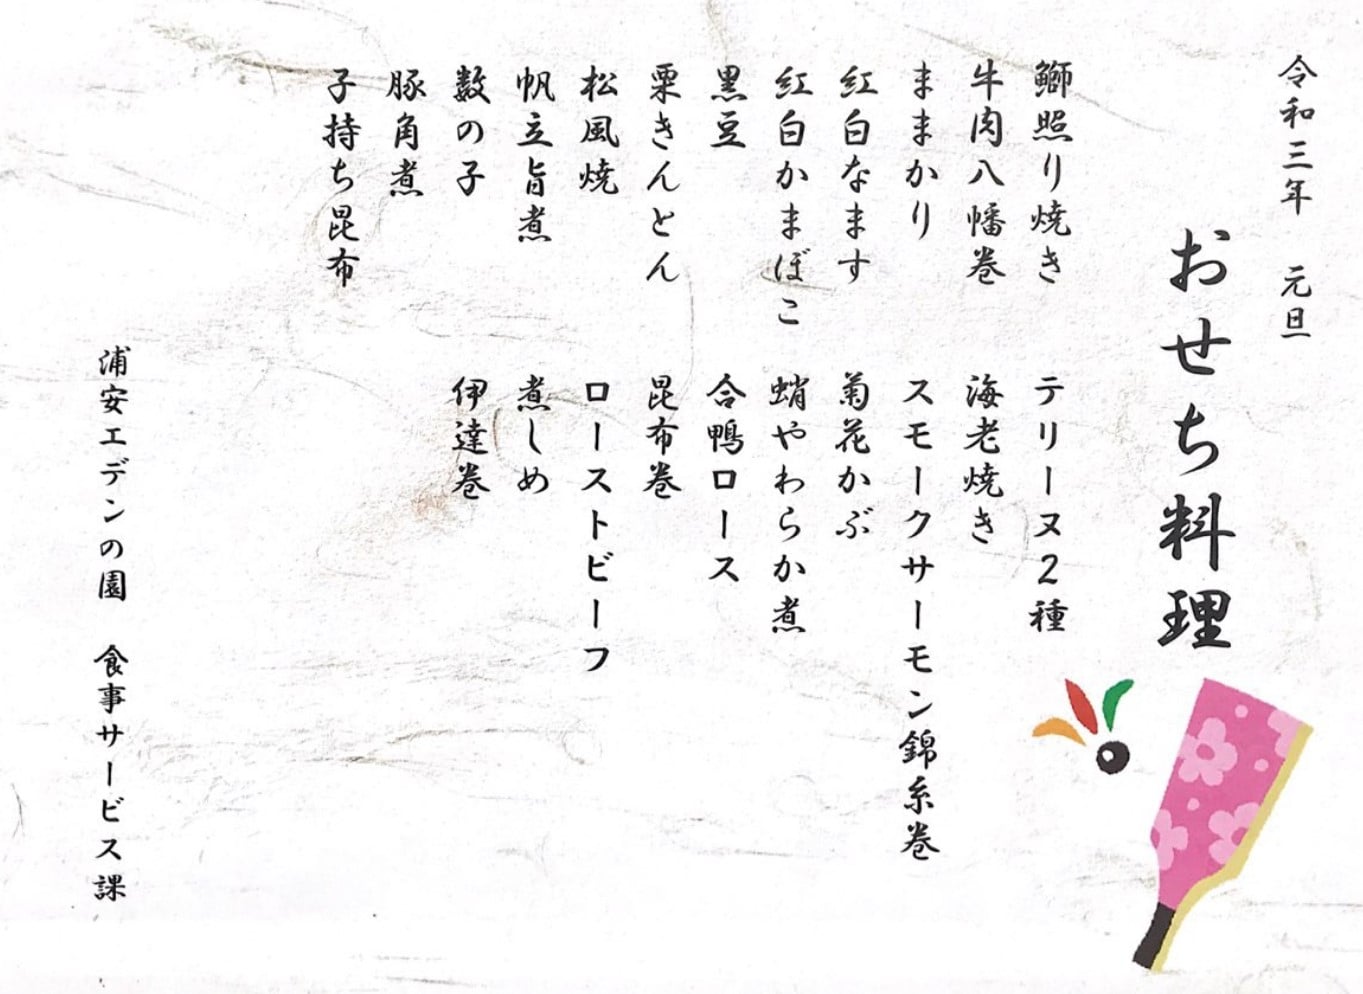 令和三年　元旦
おせち料理
鰤照り焼き
牛肉八幡巻
ままかり
紅白なます
紅白かまぼこ
黒豆
栗きんとん
松風焼
帆立旨煮
数の子
豚角煮
子持ち昆布
テリーヌ2種
海老焼き
スモークサーモン錦糸巻
菊花かぶ
蛸やわらか煮
合鴨ロース
昆布巻
ローストビーフ
煮しめ
伊達巻
浦安エデンの園　食事サービス課